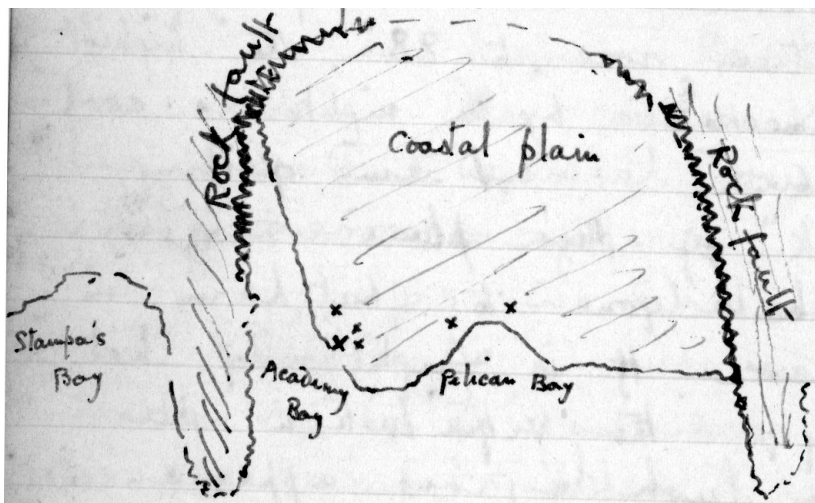 Rock fault
Coastal plain
Rock fault
Stampa's
Bay
Academy
Bay
Pelican Bay